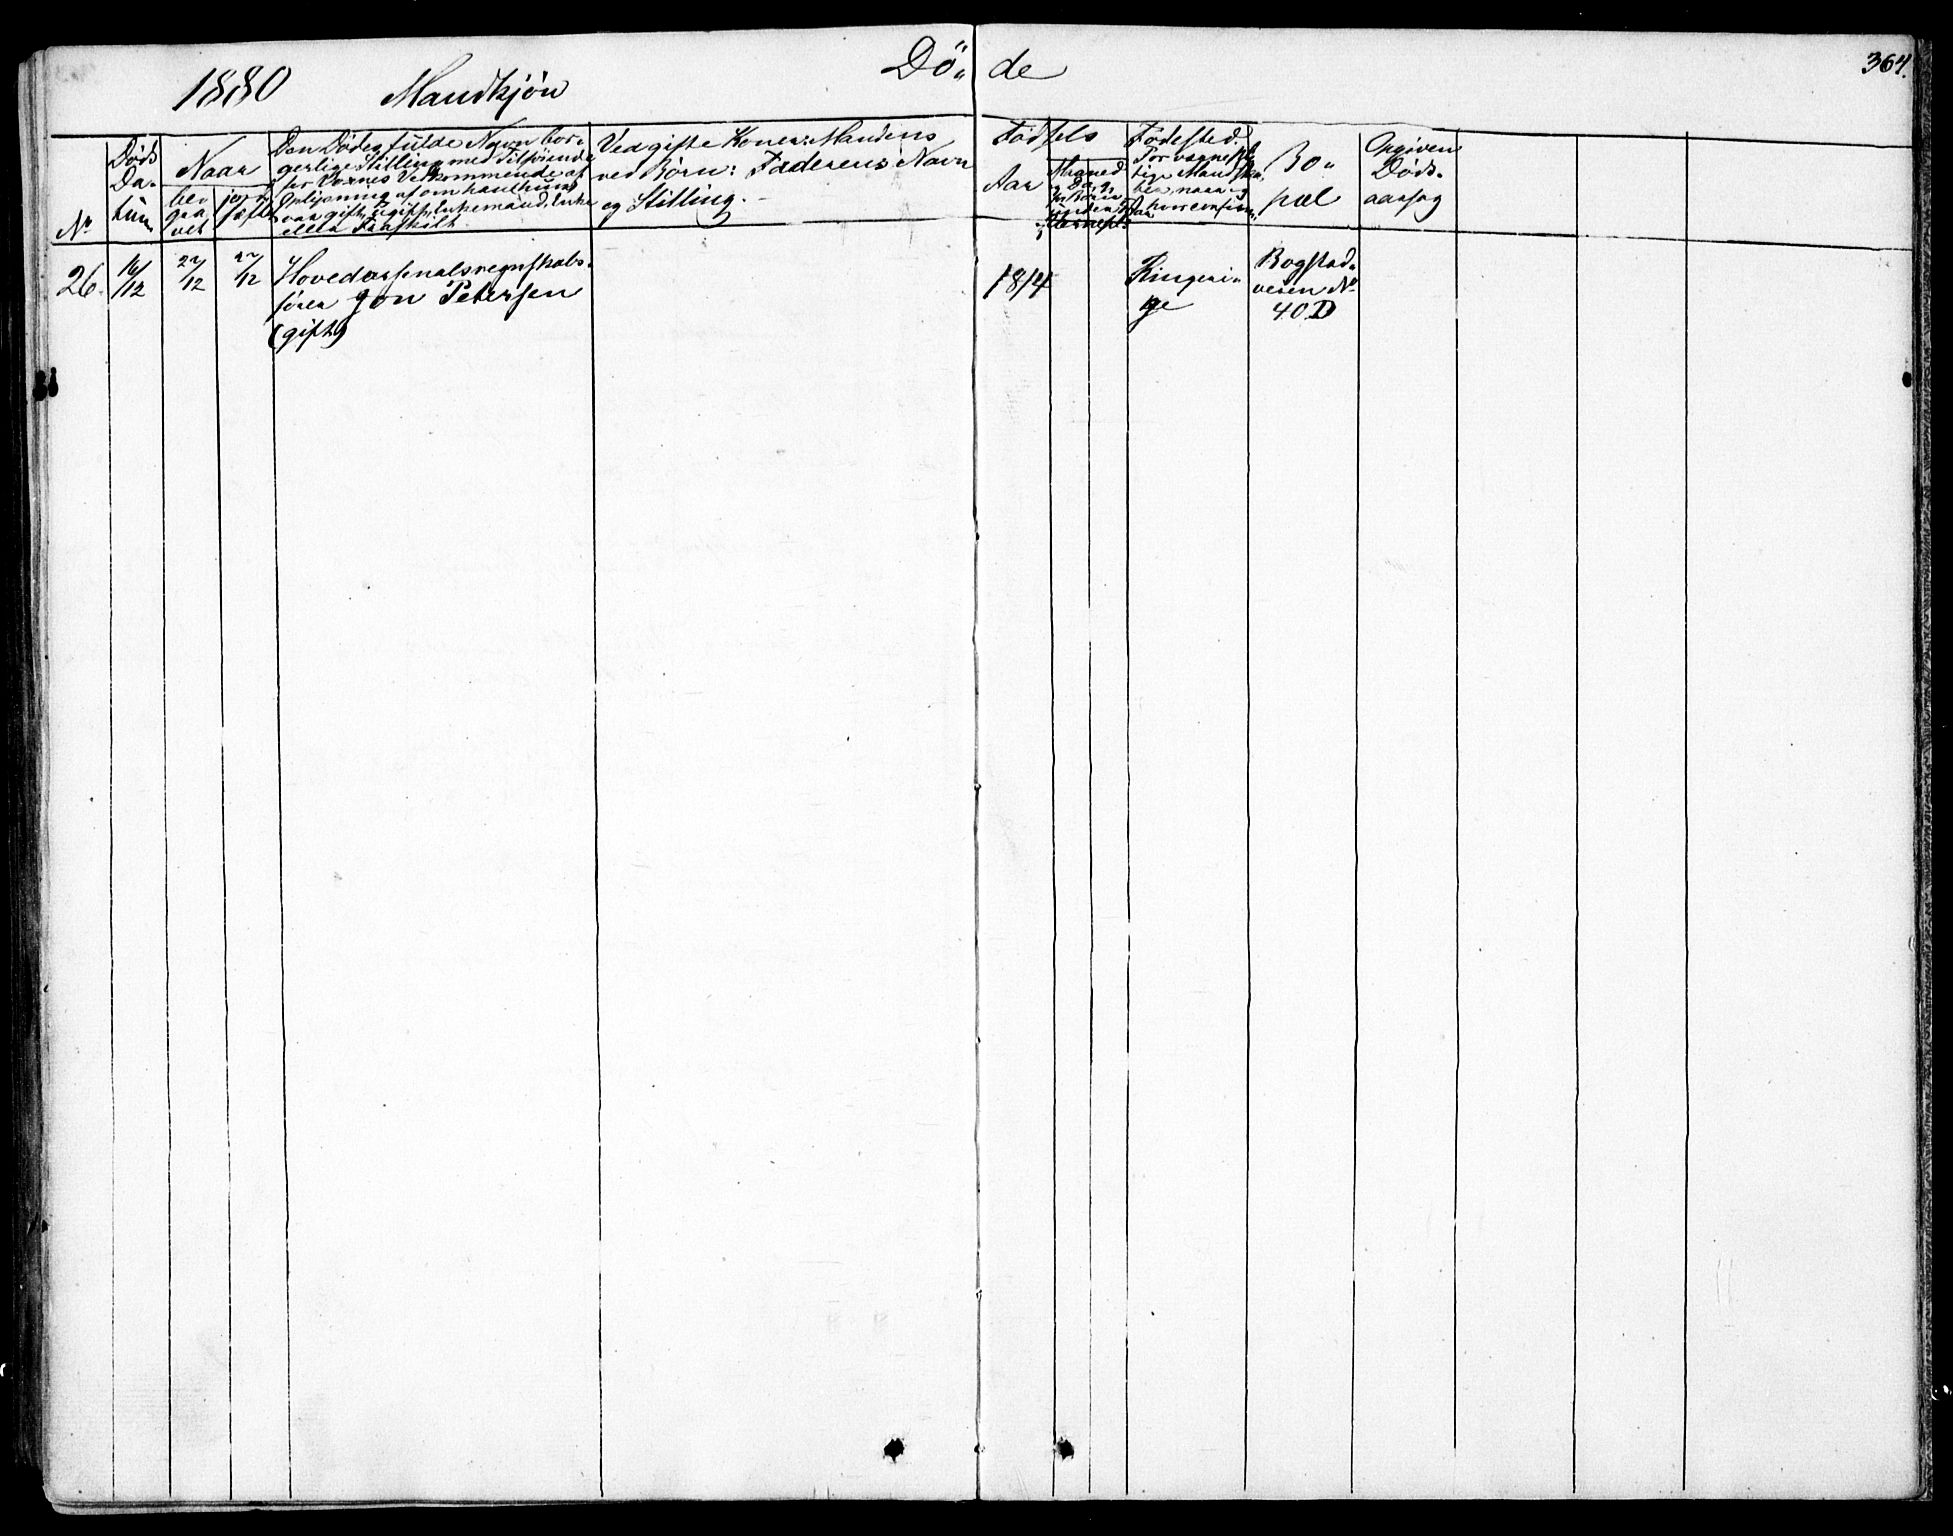 1880 Mandkjön Dö- de 364.
No
Døds
Da-
tum
Naar
be-
gra-
vet
jord-
fæstet
Den Dødes fulde Navn bor-
gerlige Stilling med Tilföiende
for Voxnes Vedkommende af
Oplysning af om han hun
var gift, ugift, Enkemand, Enke
eller Fraskilt
Ved gifte Koner: Mandens
ved Börn: Faderens Navn
og Stilling.
Födsels
Aar
Maaned
og Dag
for Börn
under
Fødested.
For værneplig-
tige Mandskaber
Bo-
pæl
Opgiven
Døds-
aarsag
26.
16/12
22/12
22/12
Hovedarsenalsregnskabs-
förer Jon Petersen
(gift)
1814
Ringeri-
ge
Bogstad-
veien No
40.D